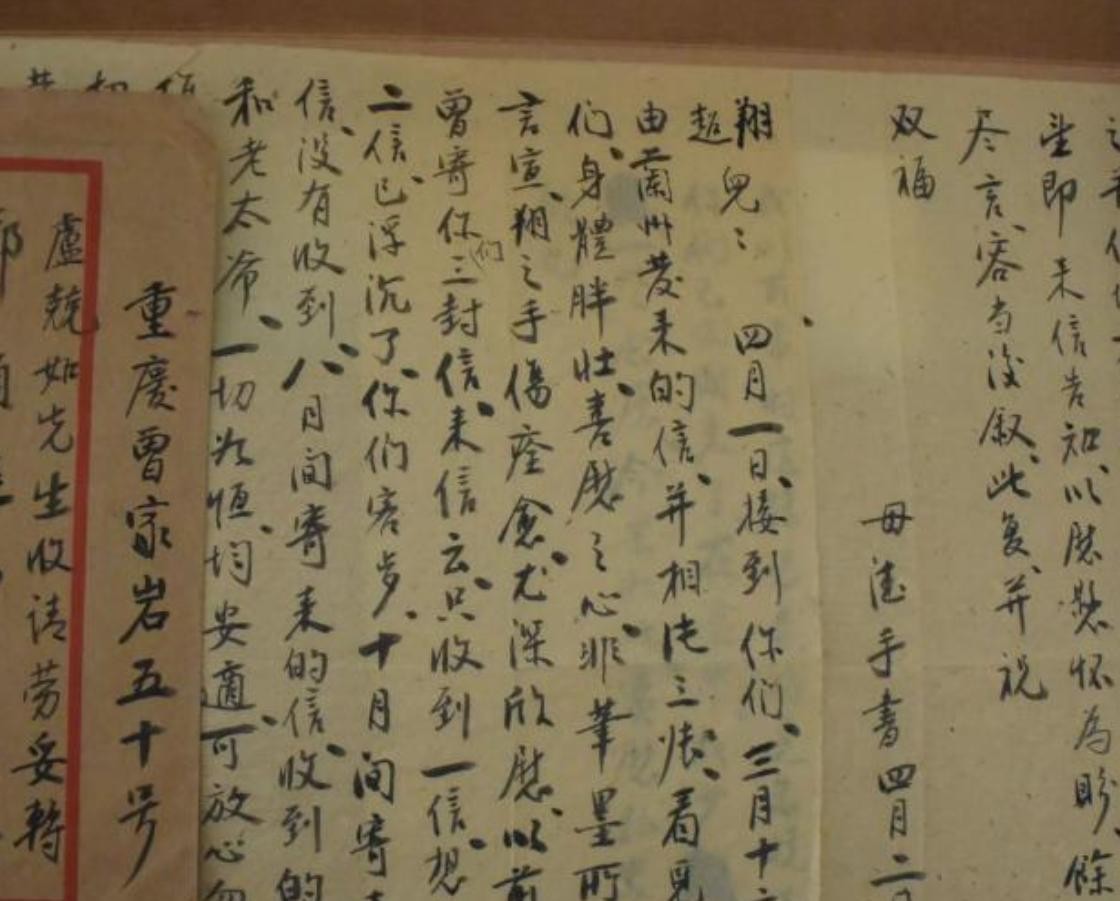 望即来信告知、以慰悬怀为盼 餘
尽言、容当後叙、此复、并祝
双福
母 手書 四月二日
翔超兒：四月一日、接到你们、三月十
由蘭州发来的信、并相片三张、看見
们、身體胖壮、喜慰之心、非筆墨所
言宣、翔之手傷痊愈、尤深欣慰、以前
曾寄你们三封信、来信云、只收到一信、想
二信、已浮沉了、你们客岁、十月间寄
信、没有收到、八月间寄来的信、收到的
和老太爷、一切为恒、均安適、可放心勿
重慶曾家岩五十号
盧競如先生收请劳妥轉
鄧